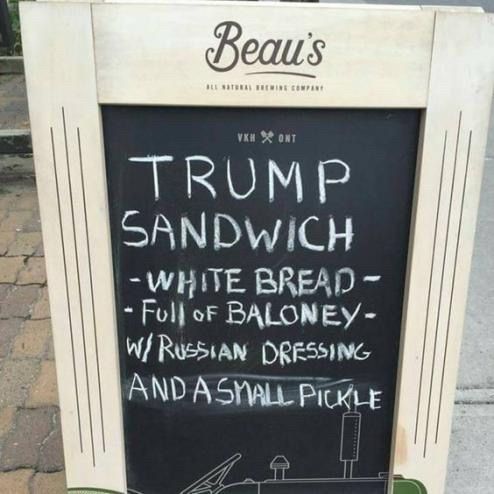 Beau's
ALL NATURAL BREWING COMPANY
VKH ONT
TRUMP
SANDWICH
- WHITE BREAD -
- Full OF BALONEY -
W/ RUSSIAN DRESSING
AND A SMALL PICKLE